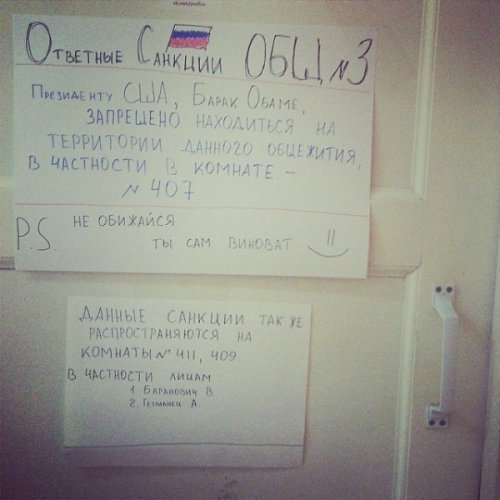 Ответные Санкции ОБЩ №3
Президенту США, Барак Обаме,
ЗАПРЕЩЕНО НАХОДИТЬСЯ НА
ТЕРРИТОРИИ ДАННОГО ОБЩЕЖИТИЯ,
В ЧАСТНОСТИ В КОМНАТЕ –
№ 407
P.S. НЕ ОБИЖАЙСЯ
ТЫ САМ ВИНОВАТ
ДАННЫЕ САНКЦИИ ТАК ЖЕ
РАСПРОСТРАНЯЮТСЯ НА
КОМНАТЫ №411, 409
В ЧАСТНОСТИ ЛИЦАМ
1. Баранович В
2. Гетманец А